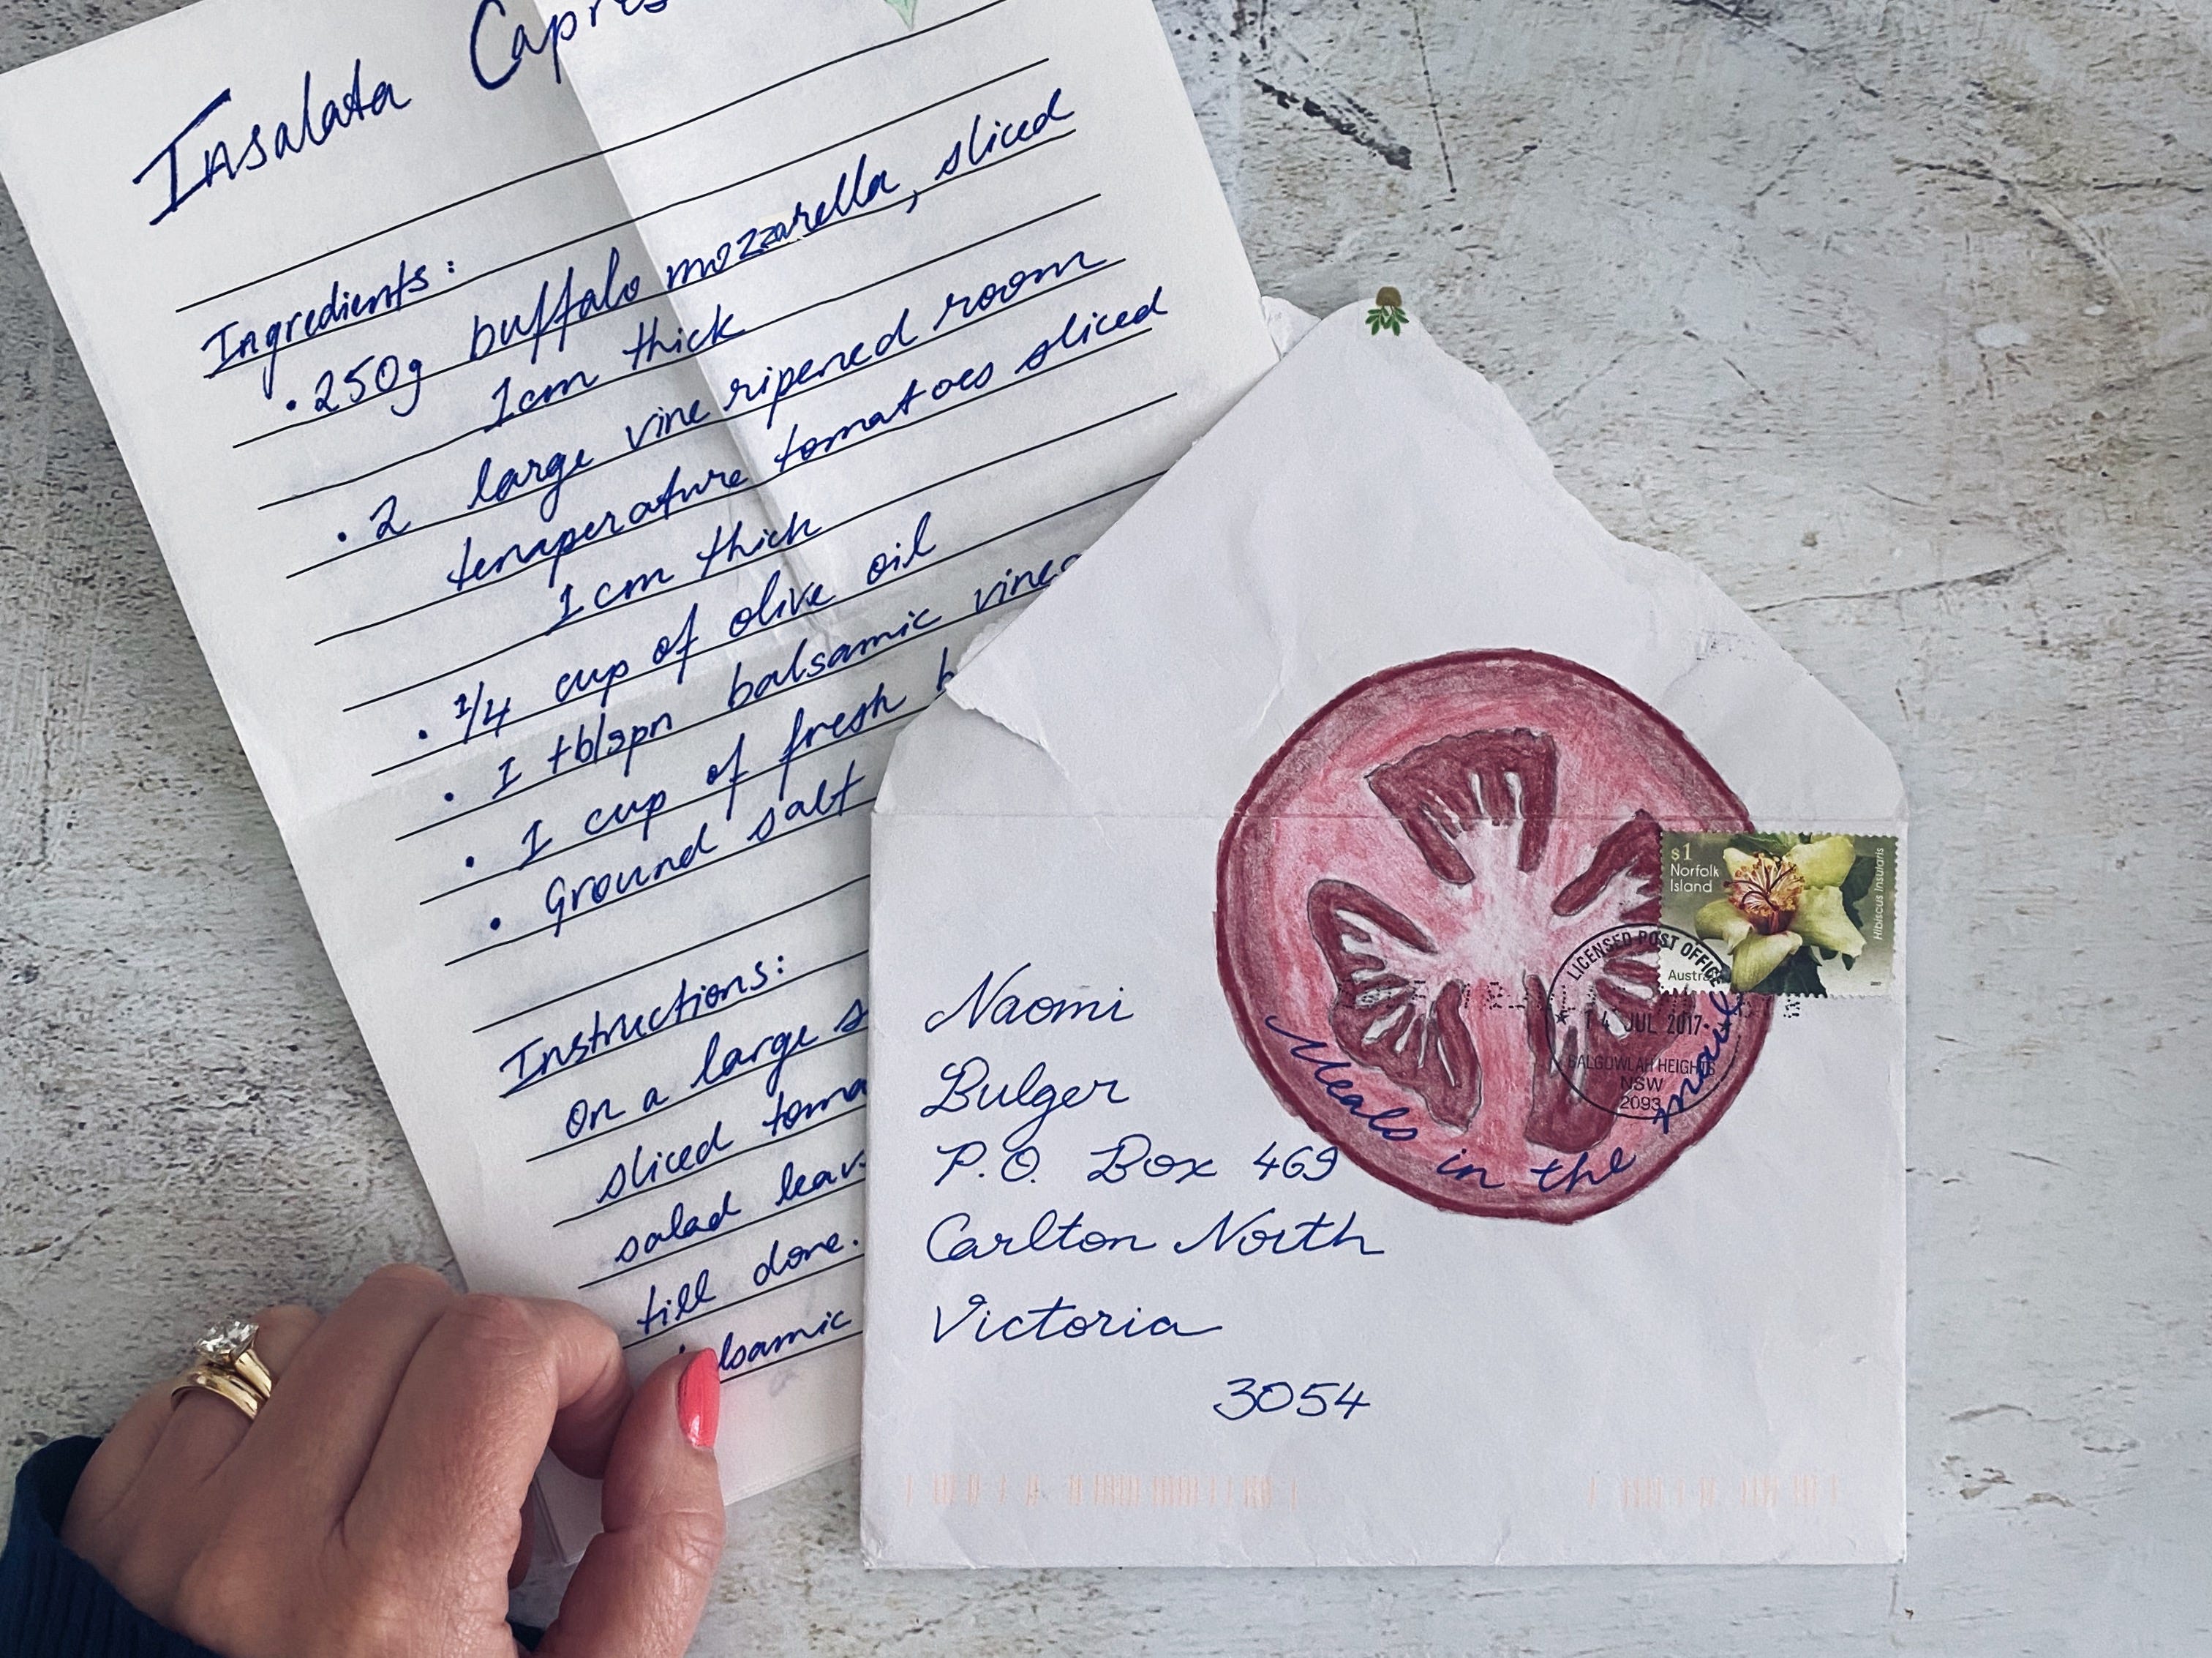 Insalata
Ingredients:
• 250g buffalo mozzarella, sliced
1cm thick
• 2 large vine ripened room
temperature tomatoes sliced
1cm thick
• 1/4 cup of olive oil
• 1 tblspn balsamic
• 1 cup of fresh
• Ground salt
Instructions:
on a large
sliced
salad
till done.
Naomi
Bulger
P.O. Box 469
Carlton North
Victoria
3054
Meals in the mail
$1
Norfolk
Island
Hibiscus insularis
LICENSED POST OFFICE
14 JUL 2017
BALGOWLAH HEIGHTS
NSW
2093